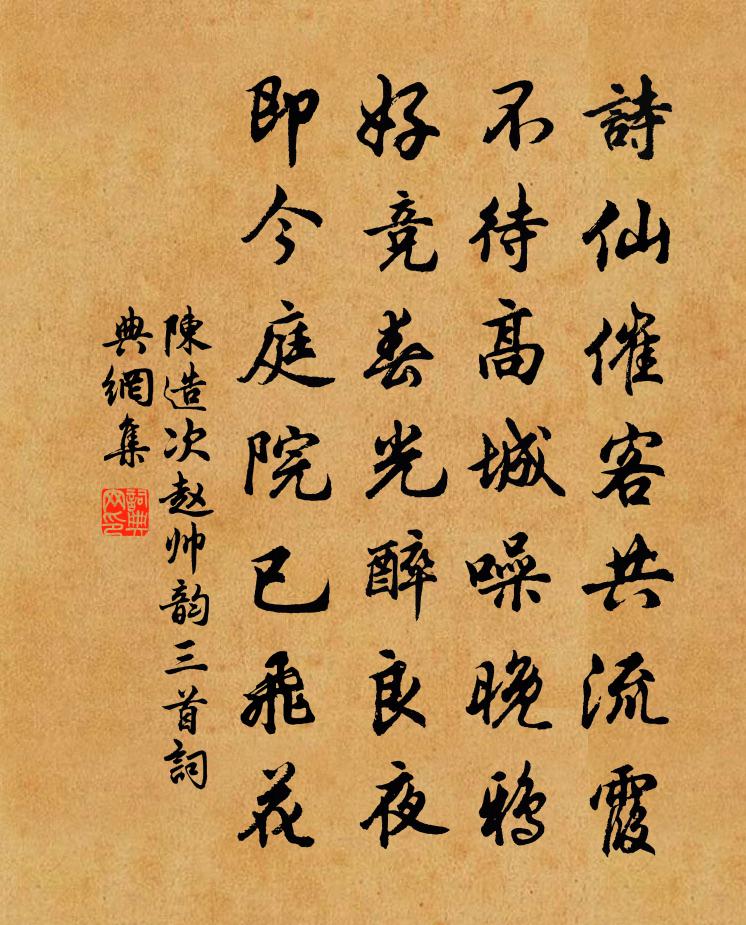 詩仙催客共流霞
不待高城噪晚鴉
好竞春光醉良夜
即今庭院已飛花
陳造次赵帅韵三首詞
典網集
詞典网印